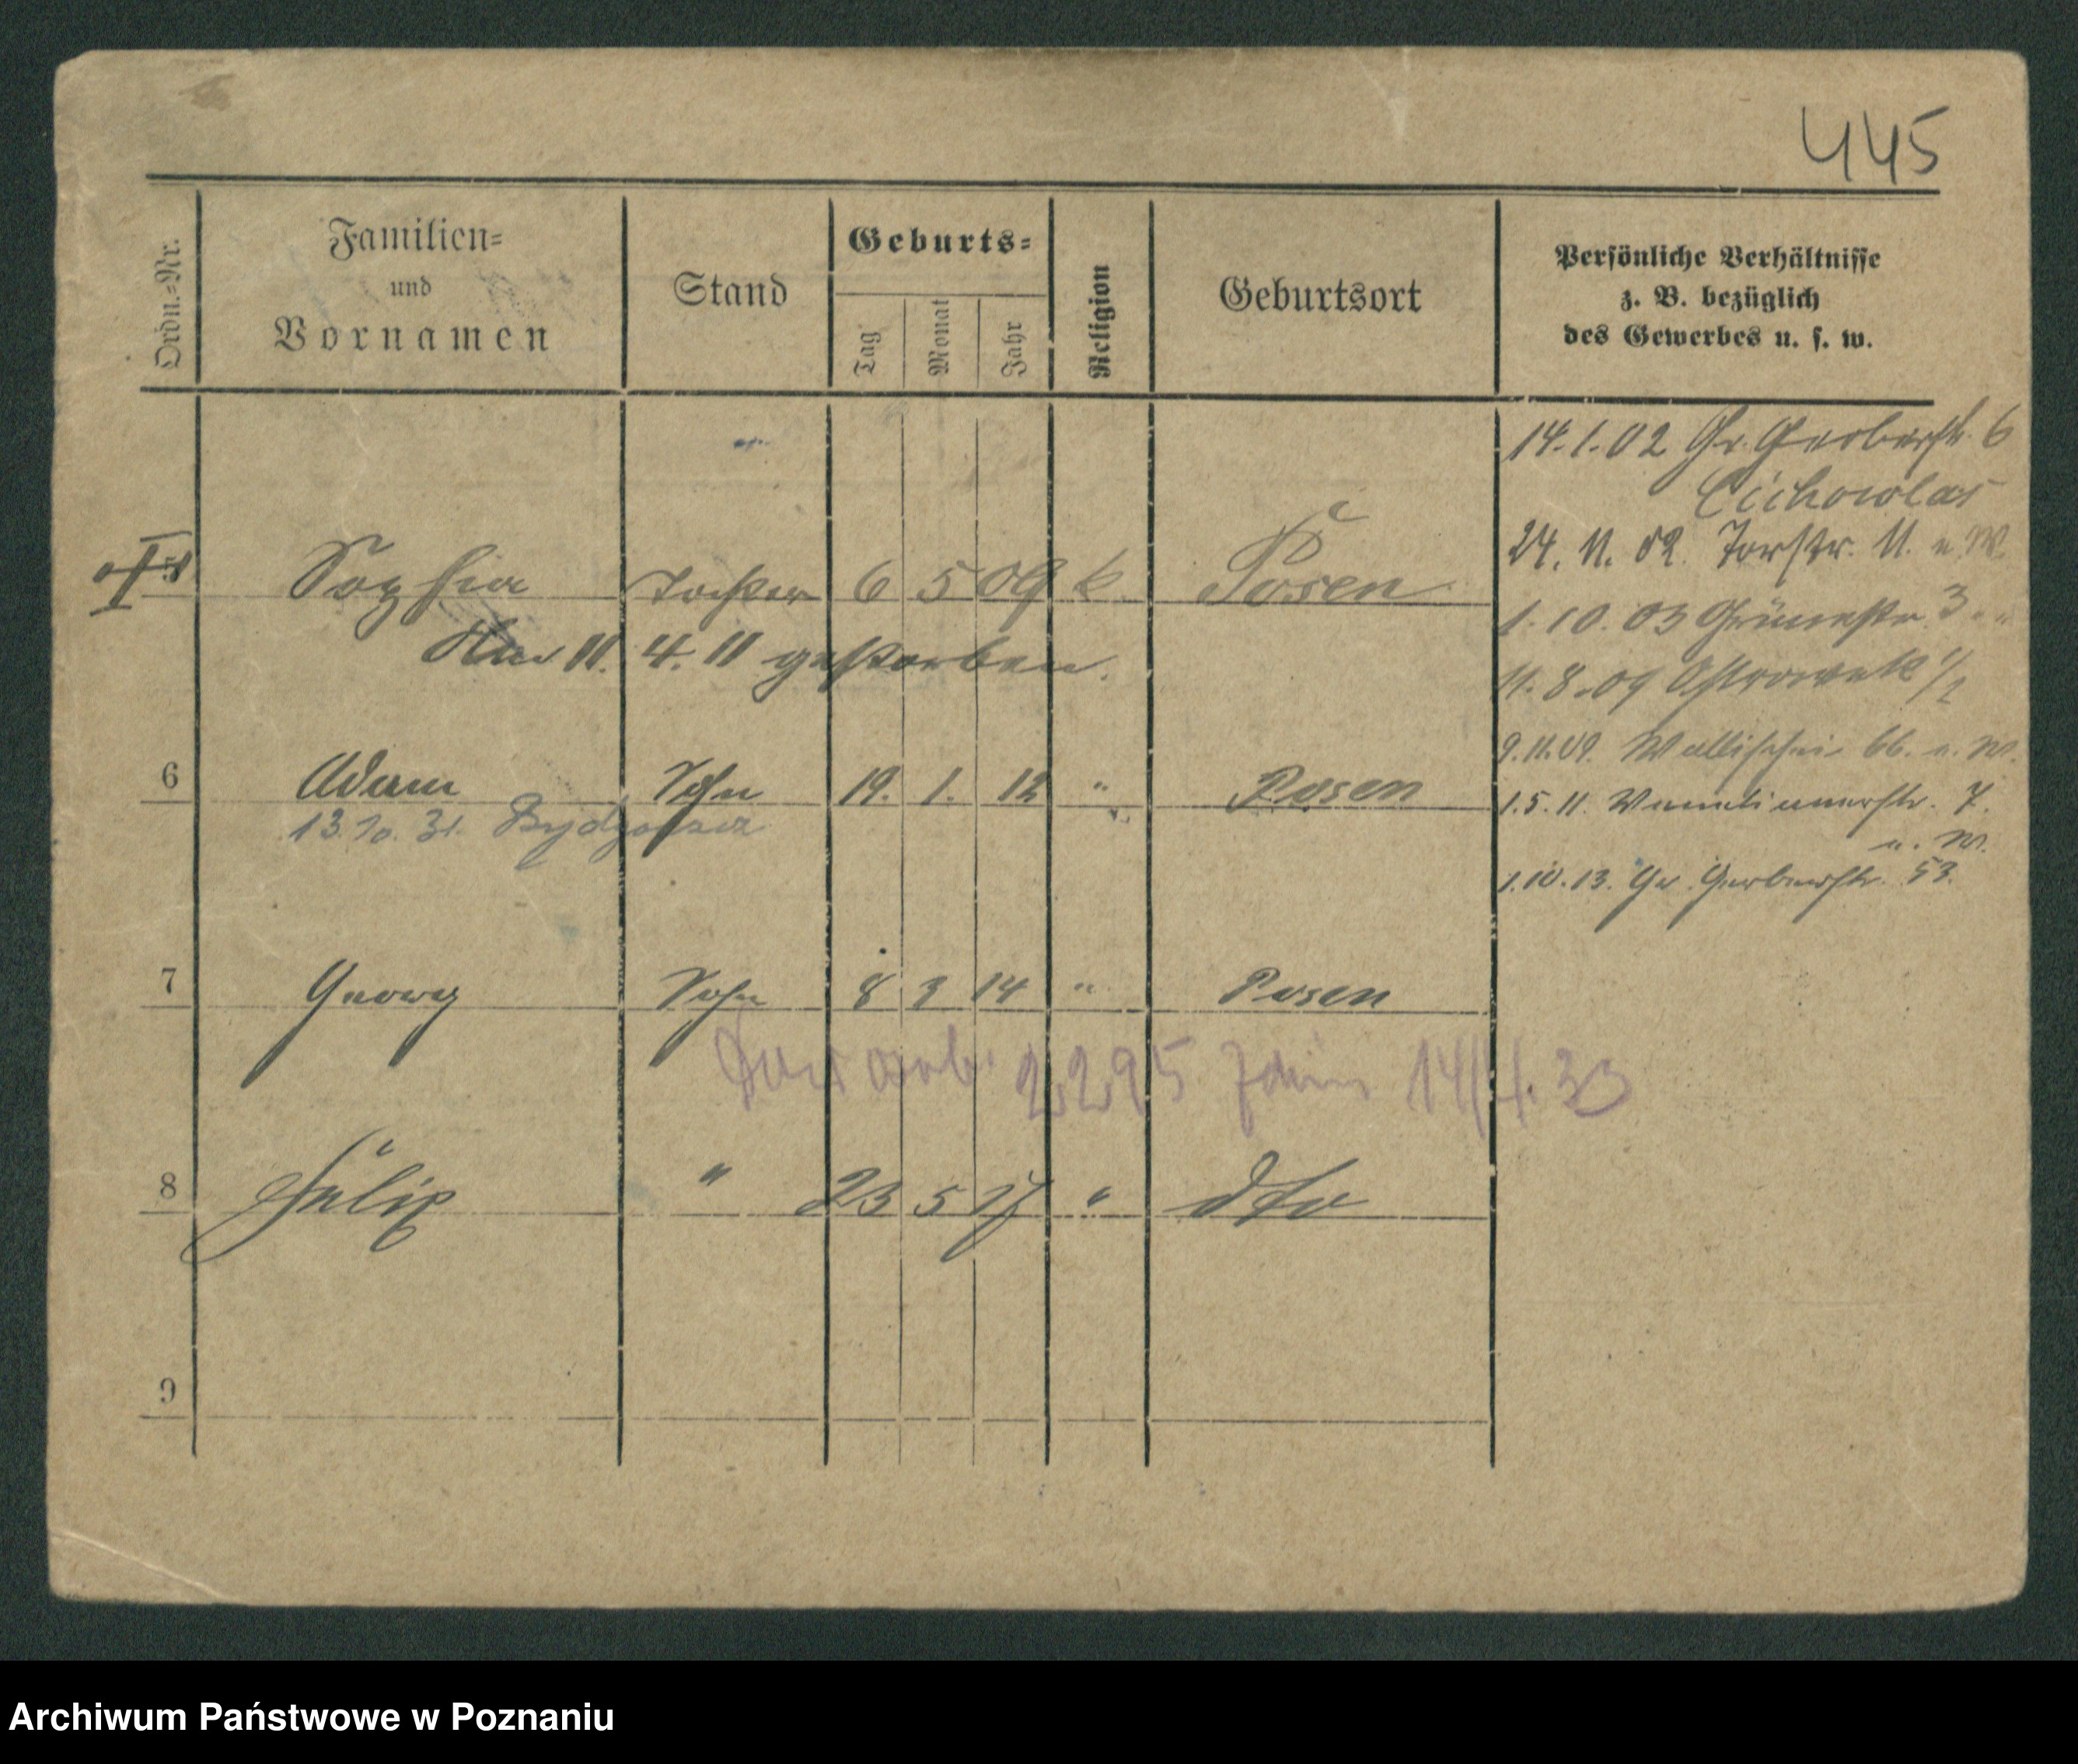 445
Ordn.-Nr.
Familien-
und
Vornamen
Stand
Geburts-
Tag
Monat
Jahr
Religion
Geburtsort
Persönliche Verhältnisse
z. B. bezüglich
des Gewerbes u. s. w.
14.1.02 Gr. Gerberstr. 6
24. 11. 02. Torstr. 11. u. W.
1. 10. 03 Grünestr. 3 " "
11. 8. 09 Ostrowek 1/2
9.11.09. Wallischei 66. u. W.
1.5.11. Venetianerstr. 7.
u. W.
1.10.13. Gr. Gerberstr. 53.
5 Sophia Tochter 6 5 09 k. Posen
11. 4. 11 gestorben.
6 Adam Sohn 19. 1. 12 " Posen
13.10.31. Bydgoszcz
7 Georg Sohn 8 3 14 " Posen
2295 14/4.33
8 Felix " 23 5 17 " dto
9
Archiwum Państwowe w Poznaniu